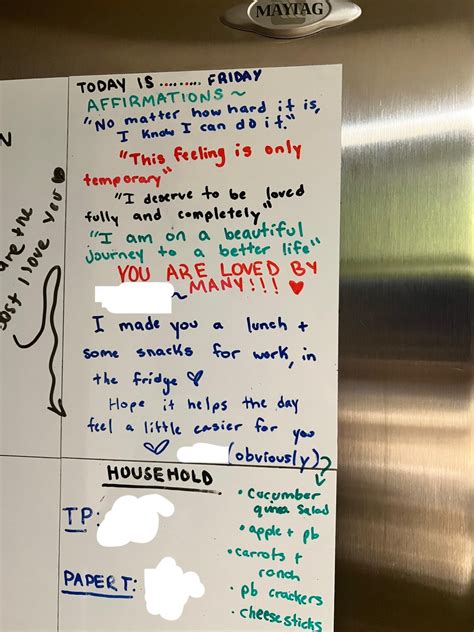 MAYTAG
TODAY IS ......... FRIDAY
AFFIRMATIONS ~
"No matter how hard it is,
I know I can do it."
"This feeling is only
temporary"
"I deserve to be loved
fully and completely"
"I am on a beautiful
journey to a better life"
YOU ARE LOVED BY
MANY!!! ♥
~
I made you a lunch +
some snacks for work, in
the fridge ♡
Hope it helps the day
feel a little easier for you
♡ (obviously)
N
are the
I love you ♥
HOUSEHOLD
TP:
PAPER T:
• Cucumber
salad
• apple + pb
• carrots +
ranch
• pb crackers
• cheese sticks